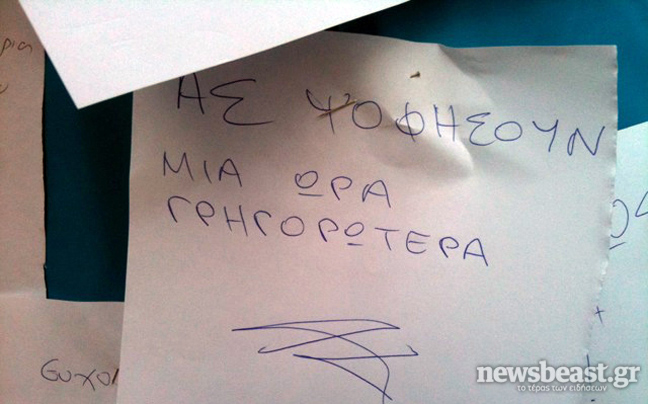 ρια
ΑΣ ΨΟΦΗΣΟΥΝ
ΜΙΑ ΩΡΑ
ΓΡΗΓΟΡΩΤΕΡΑ
newsbeast.gr
το τέρας των ειδήσεων